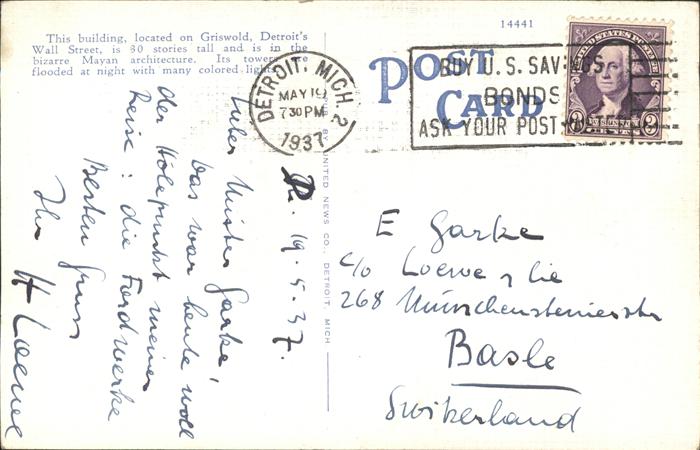 This building, located on Griswold, Detroit's
Wall Street, is 30 stories tall and is in the
bizarre Mayan architecture. Its towers are
flooded at night with many colored lights.
14441
POST
CARD
DETROIT, MICH. 2
MAY 19
7 30 PM
1937
BUY U.S. SAVINGS
BONDS
ASK YOUR POST
UNITED STATES POSTAGE
3 3
PUB. BY UNITED NEWS CO., DETROIT, MICH
19.5.37.
Lieber Mister Garke,
Das war heute wohl
der Höhepunkt meiner
Reise: die Fordwerke
Besten Gruss
Ihr
H Loewe
E Garke
c/o Loewe & Cie
268 Münchensteinerstr
Basle
Switzerland